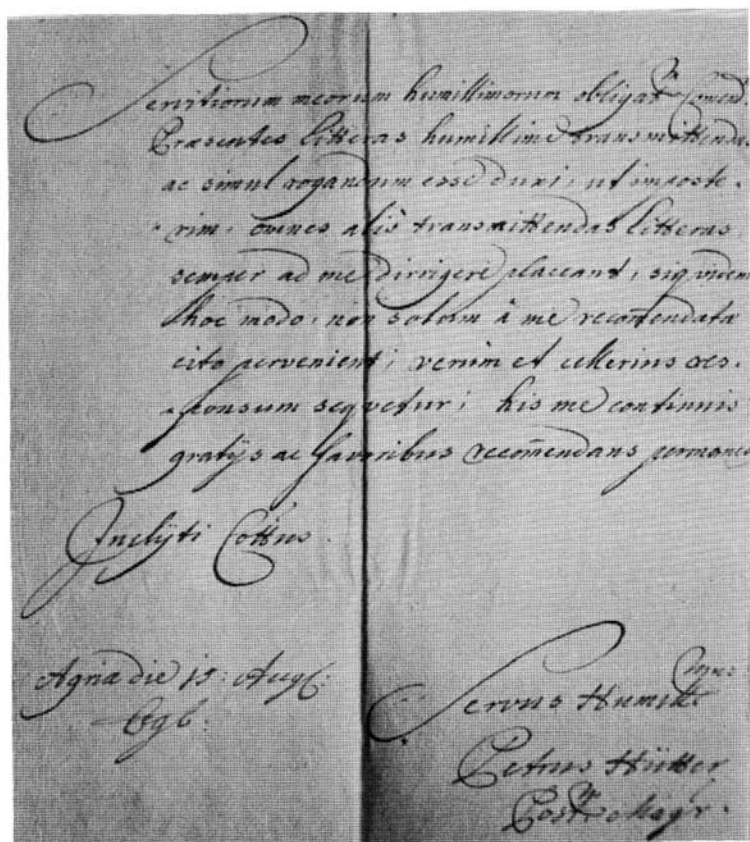 Servitiorum meorum humillimorum obligat^m Comend.
Præsentes litteras humillime transmittendas
ac simul rogandum esse duxi, ut imposte-
rim, omnes aliò transmittendas litteras,
semper ad me dirrigere placeant, siquidem
hoc modo, non solum à me recom̃endata
cito pervenient; verum et cellerius res-
ponsum sequetur; his me continuis
gratijs ac favoribus recom̃endans permaneo
Inclÿti Cottus.
Agriæ die 15: Aug:
Servus Humill^imus
Petrus Hütter